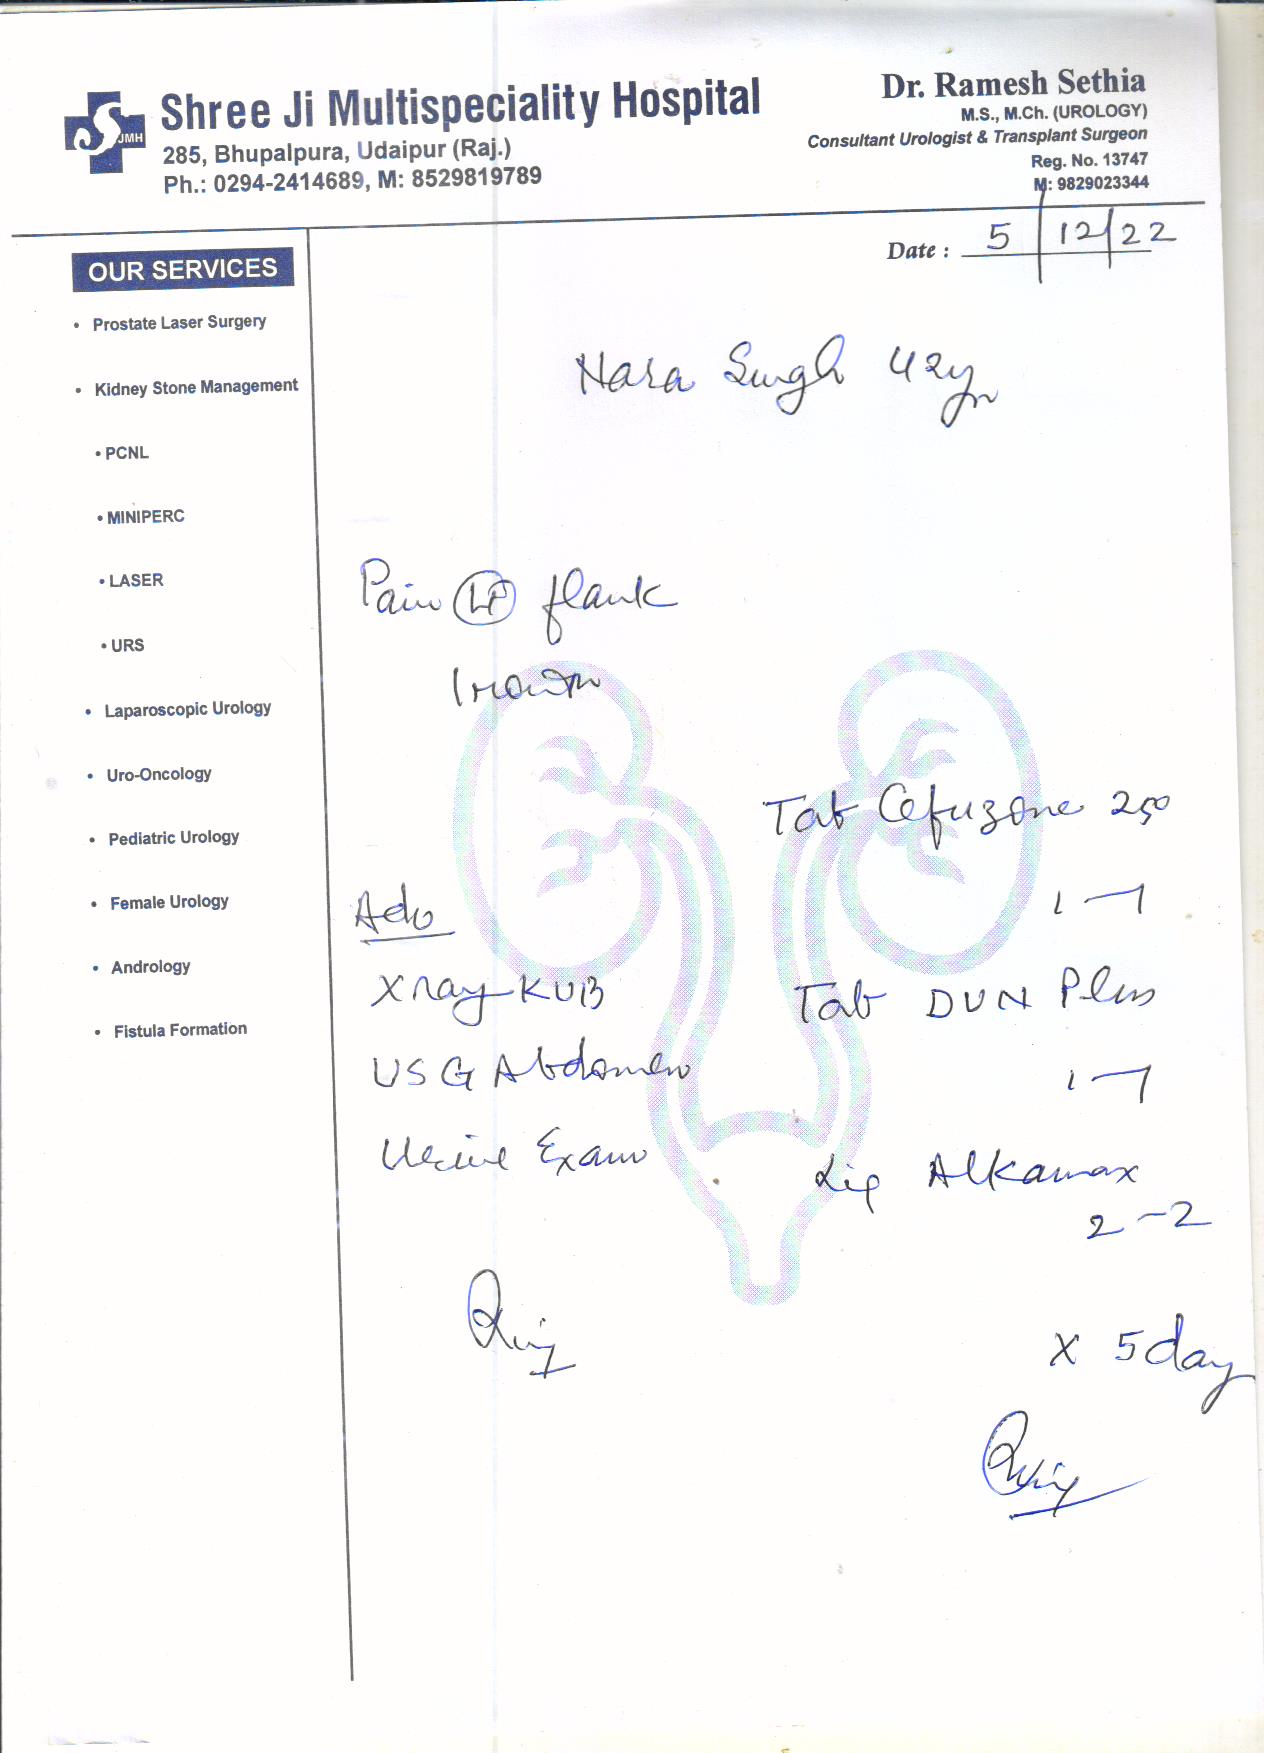 JMH
Shree Ji Multispeciality Hospital
285, Bhupalpura, Udaipur (Raj.)
Ph.: 0294-2414689, M: 8529819789
Dr. Ramesh Sethia
M.S., M.Ch. (UROLOGY)
Consultant Urologist & Transplant Surgeon
Reg. No. 13747
M: 9829023344
Date : 5/12/22
OUR SERVICES
• Prostate Laser Surgery
• Kidney Stone Management
• PCNL
• MINIPERC
• LASER
• URS
• Laparoscopic Urology
• Uro-Oncology
• Pediatric Urology
• Female Urology
• Andrology
• Fistula Formation
Nara Singh 42yr
Pain Lt flank
1 month
Adv
X ray KUB
USG Abdomen
Urine Exam
Tab Cefuzone 250
1-1
Tab DUN Plus
1-1
Liq Alkamax
2-2
X 5day